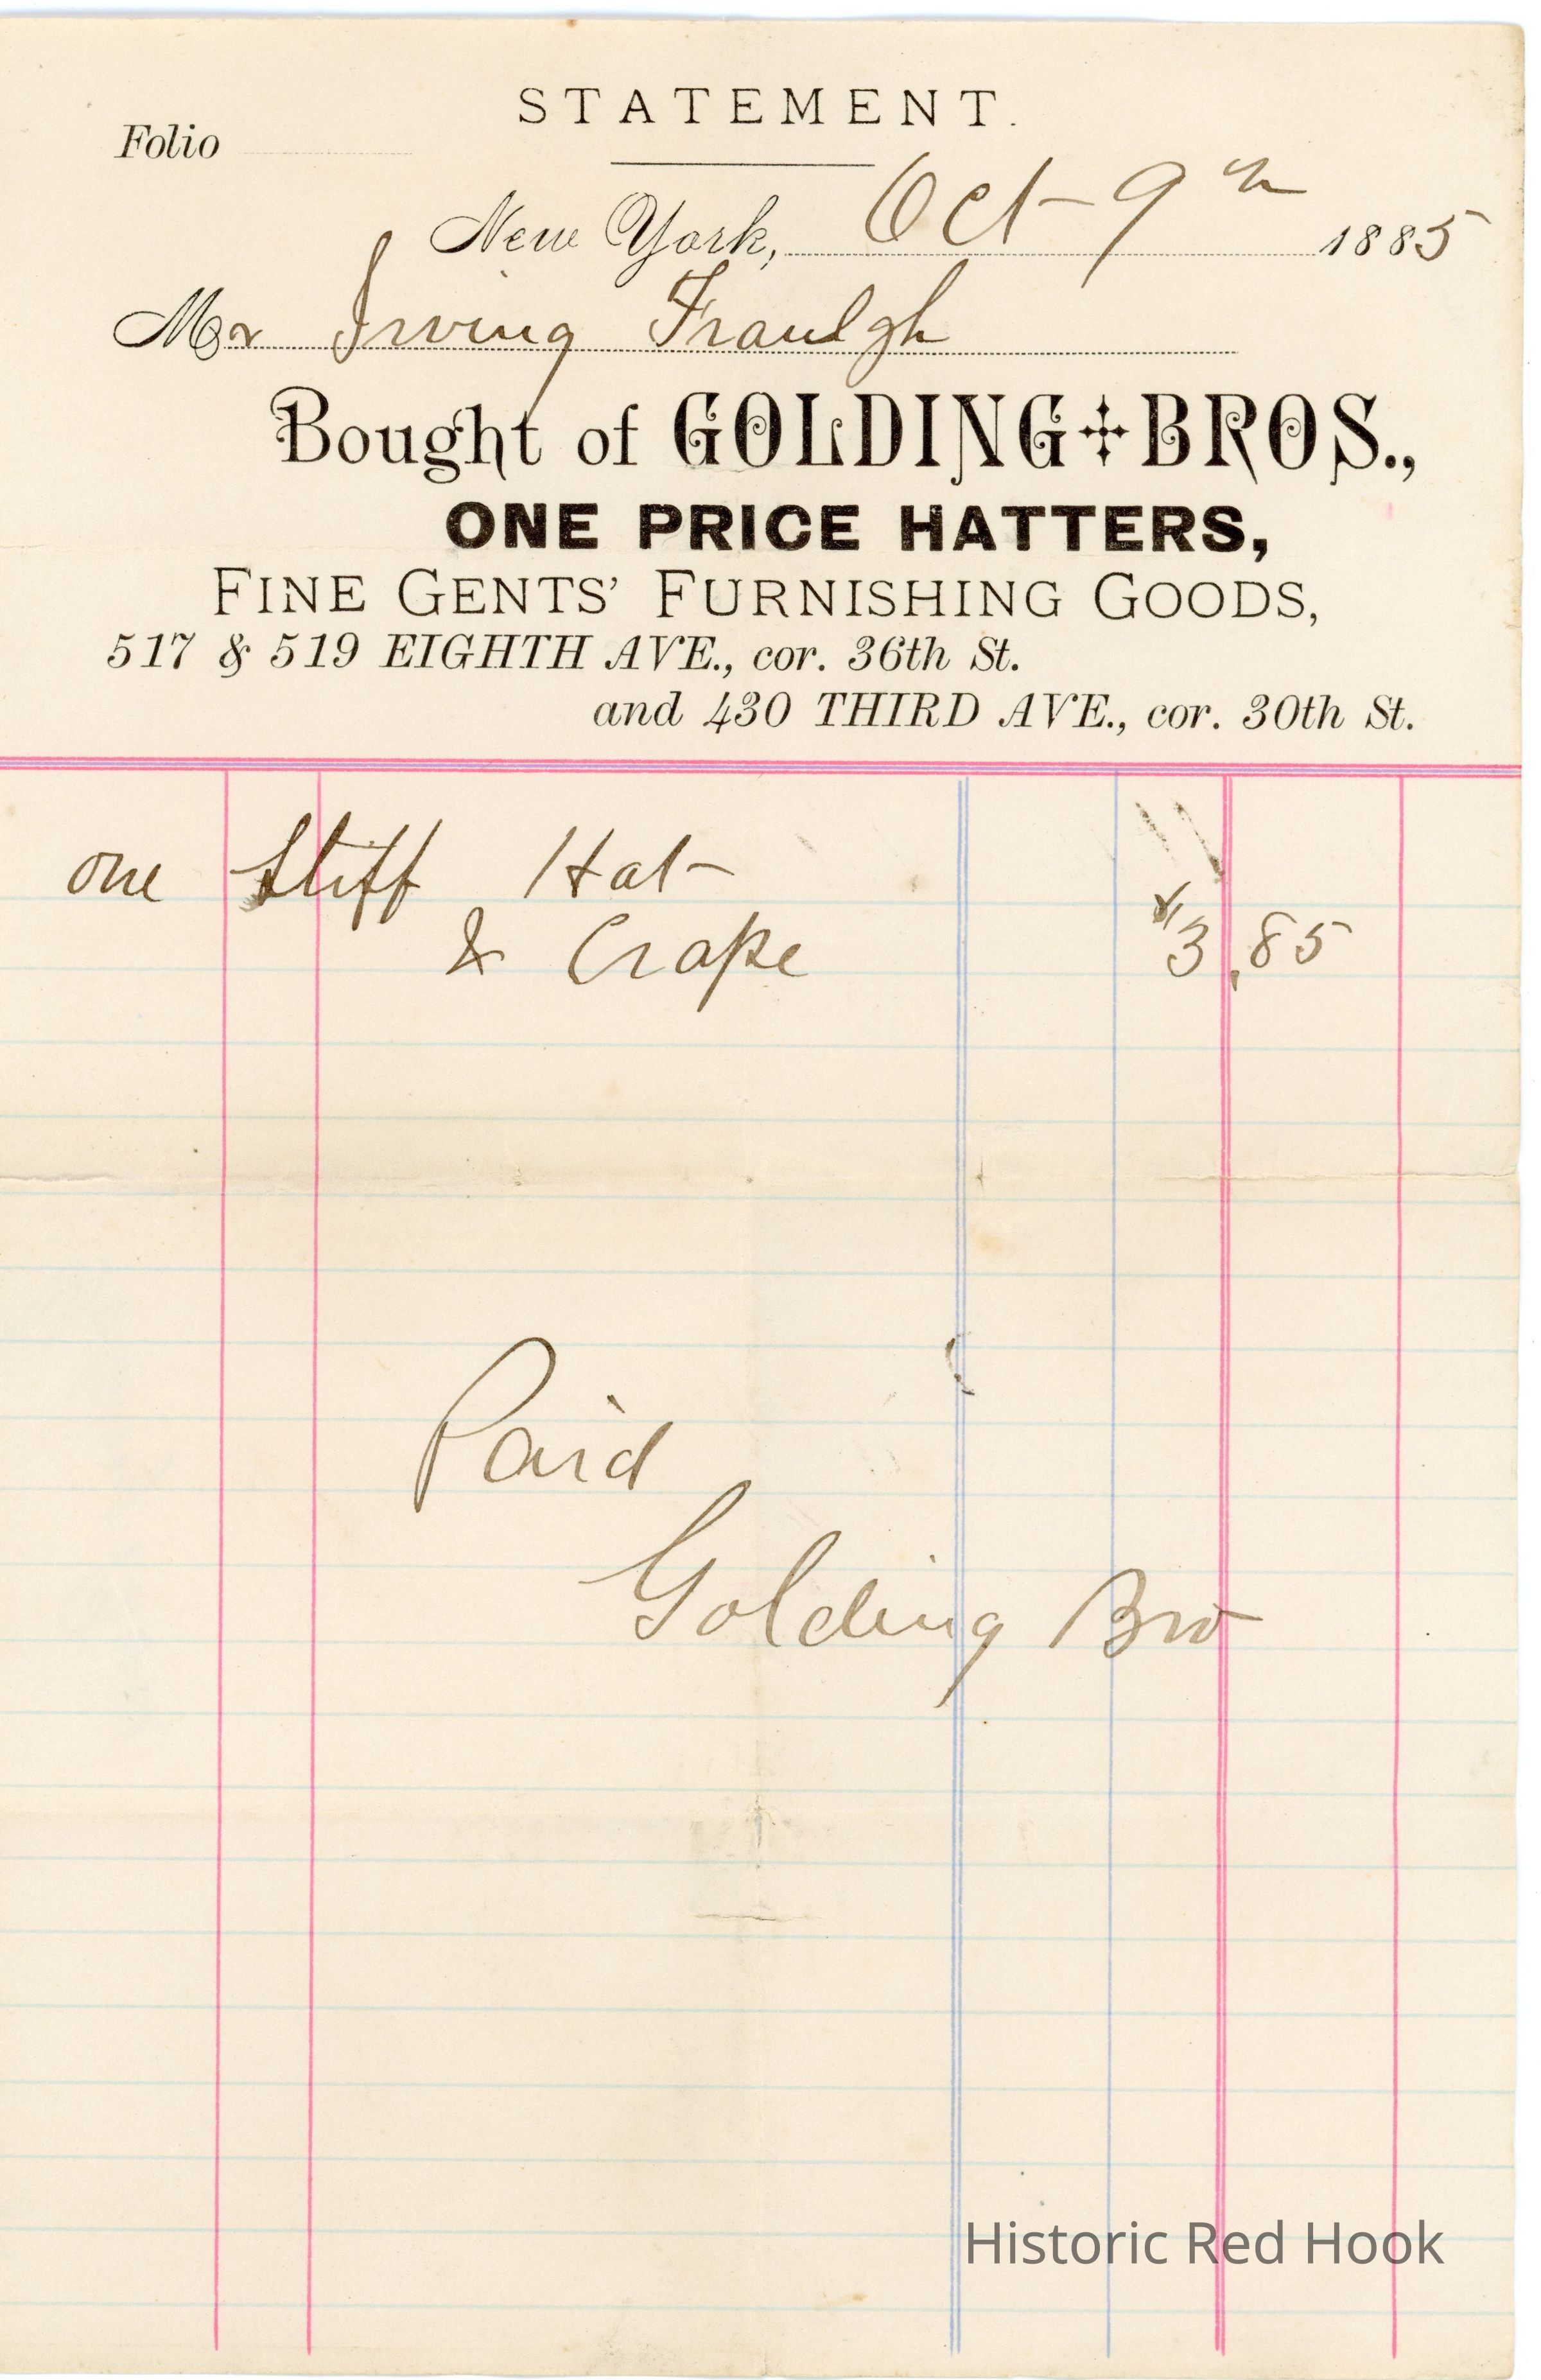 STATEMENT.
Folio
New York, Oct 9th 1885
Mr Irving
Bought of GOLDING BROS.,
ONE PRICE HATTERS,
FINE GENTS' FURNISHING GOODS,
517 & 519 EIGHTH AVE., cor. 36th St.
and 430 THIRD AVE., cor. 30th St.
one Stiff Hat
& Crape $3.85
Paid
Golding Bro
Historic Red Hook